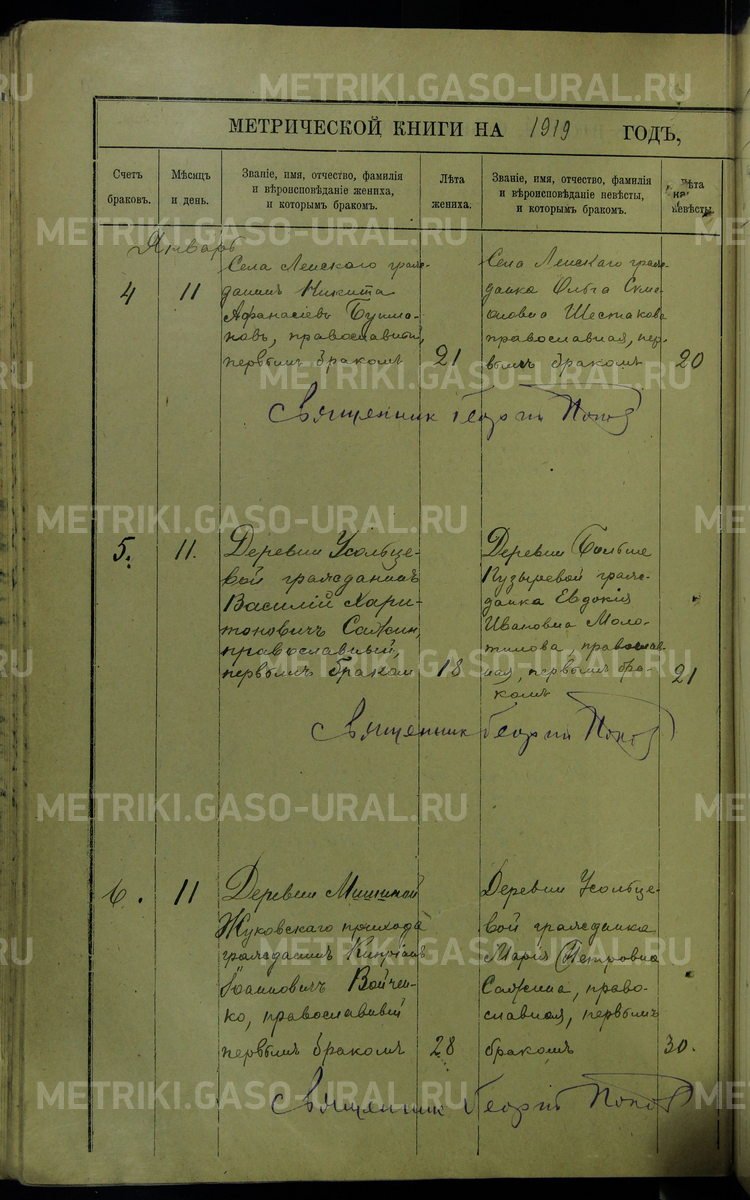 МЕТРИЧЕСКОЙ КНИГИ НА 1919 ГОДЪ,
Счетъ браковъ.
Мѣсяцъ и день.
Званіе, имя, отчество, фамилія и вѣроисповѣданіе жениха, и которымъ бракомъ.
Лѣта жениха.
Званіе, имя, отчество, фамилія и вѣроисповѣданіе невѣсты, и которымъ бракомъ.
Лѣта невѣсты.
Январь
4
11
Села Ленскаго граж-
данинъ Никита
Афанасіевъ
новъ, православный,
первымъ бракомъ
21
Села Ленскаго граж-
данка Ольга Симе-
оновна Шестакова
православная, пер-
вымъ бракомъ
20
Священник Георгій Попов
5.
11.
Деревни Усольце-
вой гражданинъ
Василій Хари-
тоновичъ Сажин,
православный,
первымъ браком
18
Деревни Больше
Кузыревой граж-
данка Евдокія
Ивановна Моло-
тилова, православ
ная, первымъ бра-
комъ
21
Священник Георгій Попов
6.
11
Деревни Мишиной
Жуковскаго прихода
гражданинъ Кипріанъ
Іоанновичъ Войчен-
ко, православный
первымъ бракомъ
28
Деревни Усольце-
вой гражданка
Марія Петровна
Сажина, право-
славная, первымъ
бракомъ
30.
Священник Георгій Попов
METRIKI.GASO-URAL.RU